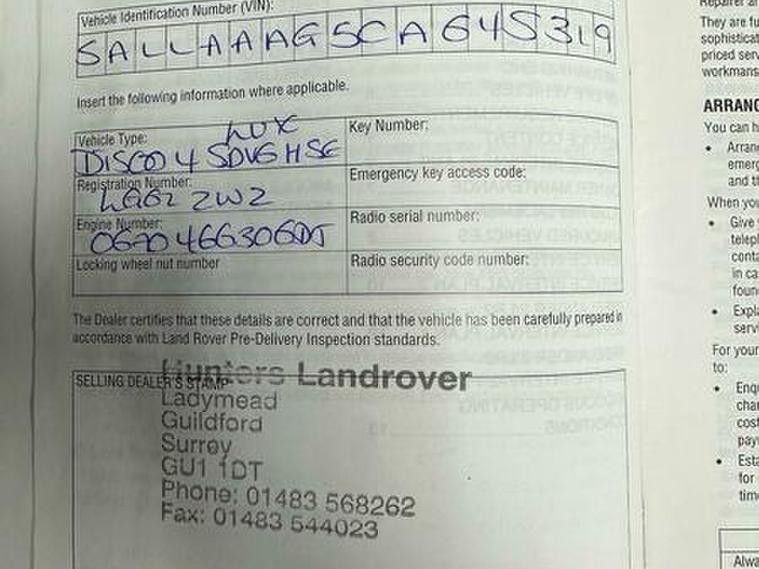 Vehicle Identification Number (VIN):
SALLAAAG5CA645319
Insert the following information where applicable.
Vehicle Type:
LUX
DISCO 4 SDV6 HSE
Key Number:
Registration Number:
Emergency key access code:
Engine Number:
Radio serial number:
Locking wheel nut number
Radio security code number:
The Dealer certifies that these details are correct and that the vehicle has been carefully prepared in
accordance with Land Rover Pre-Delivery Inspection standards.
SELLING DEALER'S STAMP
Hunters Landrover
Ladymead
Guildford
Surrey
GU1 1DT
Phone: 01483 568262
Fax: 01483 544023
They are
sophisticat
priced serv
workmans
ARRANG
You can h
• Arran
emerg
and th
When you
• Give
telep
conta
in ca
foun
• Expla
servi
For your
to:
• Enqu
char
cost
payr
• Esta
for
time
Alwa